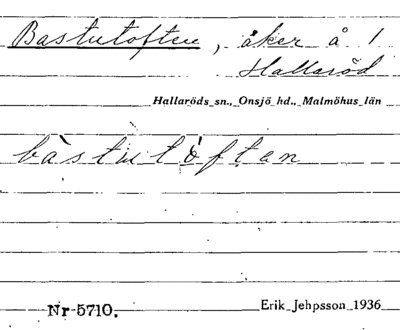 Bastutoften, åker å 1
Hallaröd
Hallaröds sn., Onsjö hd., Malmöhus län
bàstutò̀ften
Nr 5710.
Erik Jehpsson 1936